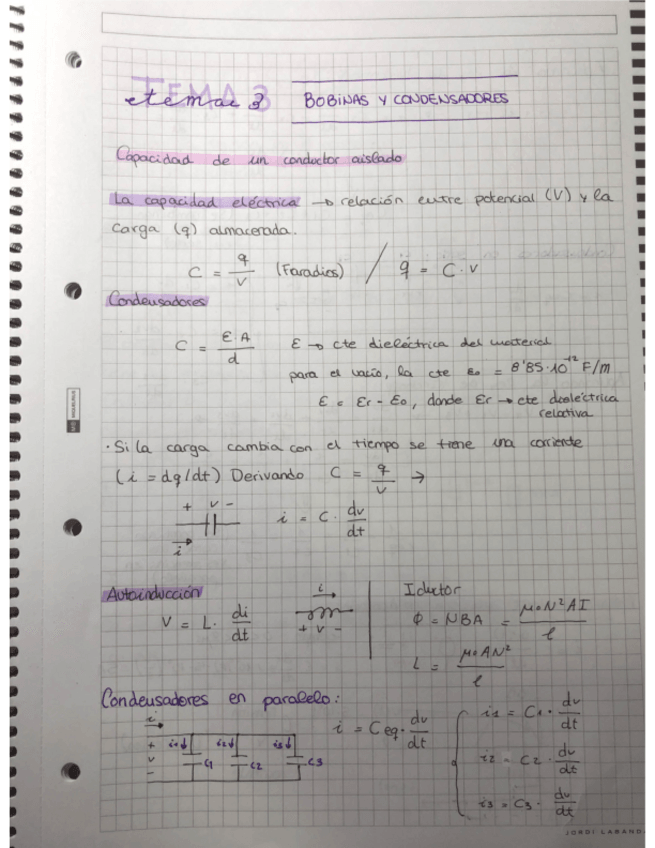 TEMA 3
tema 3 BOBINAS Y CONDENSADORES
Capacidad de un conductor aislado
La capacidad eléctrica → relación entre potencial (V) y la
carga (q) almacenada.
C = q/V (Faradios) / q = C · V
Condensadores
C = ε·A/d ε → cte dieléctrica del material
para el vacío, la cte ε0 = 8'85·10^-12 F/m
ε = εr - ε0, donde εr → cte dieléctrica
relativa
· Si la carga cambia con el tiempo se tiene una corriente
(i = dq/dt) Derivando C = q/V →
+ v -
i
i = C · dv/dt
Autoinducción
V = L · di/dt
i
+ v -
Iductor
Φ = NBA = μoN²AI/ℓ
L = μoAN²/ℓ
Condensadores en paralelo:
i
+ v -
i1↓ C1 i2↓ C2 i3↓ C3
i = Ceq · dv/dt
i1 = C1 · dv/dt
i2 = C2 · dv/dt
i3 = C3 · dv/dt
JORDI LABANDA